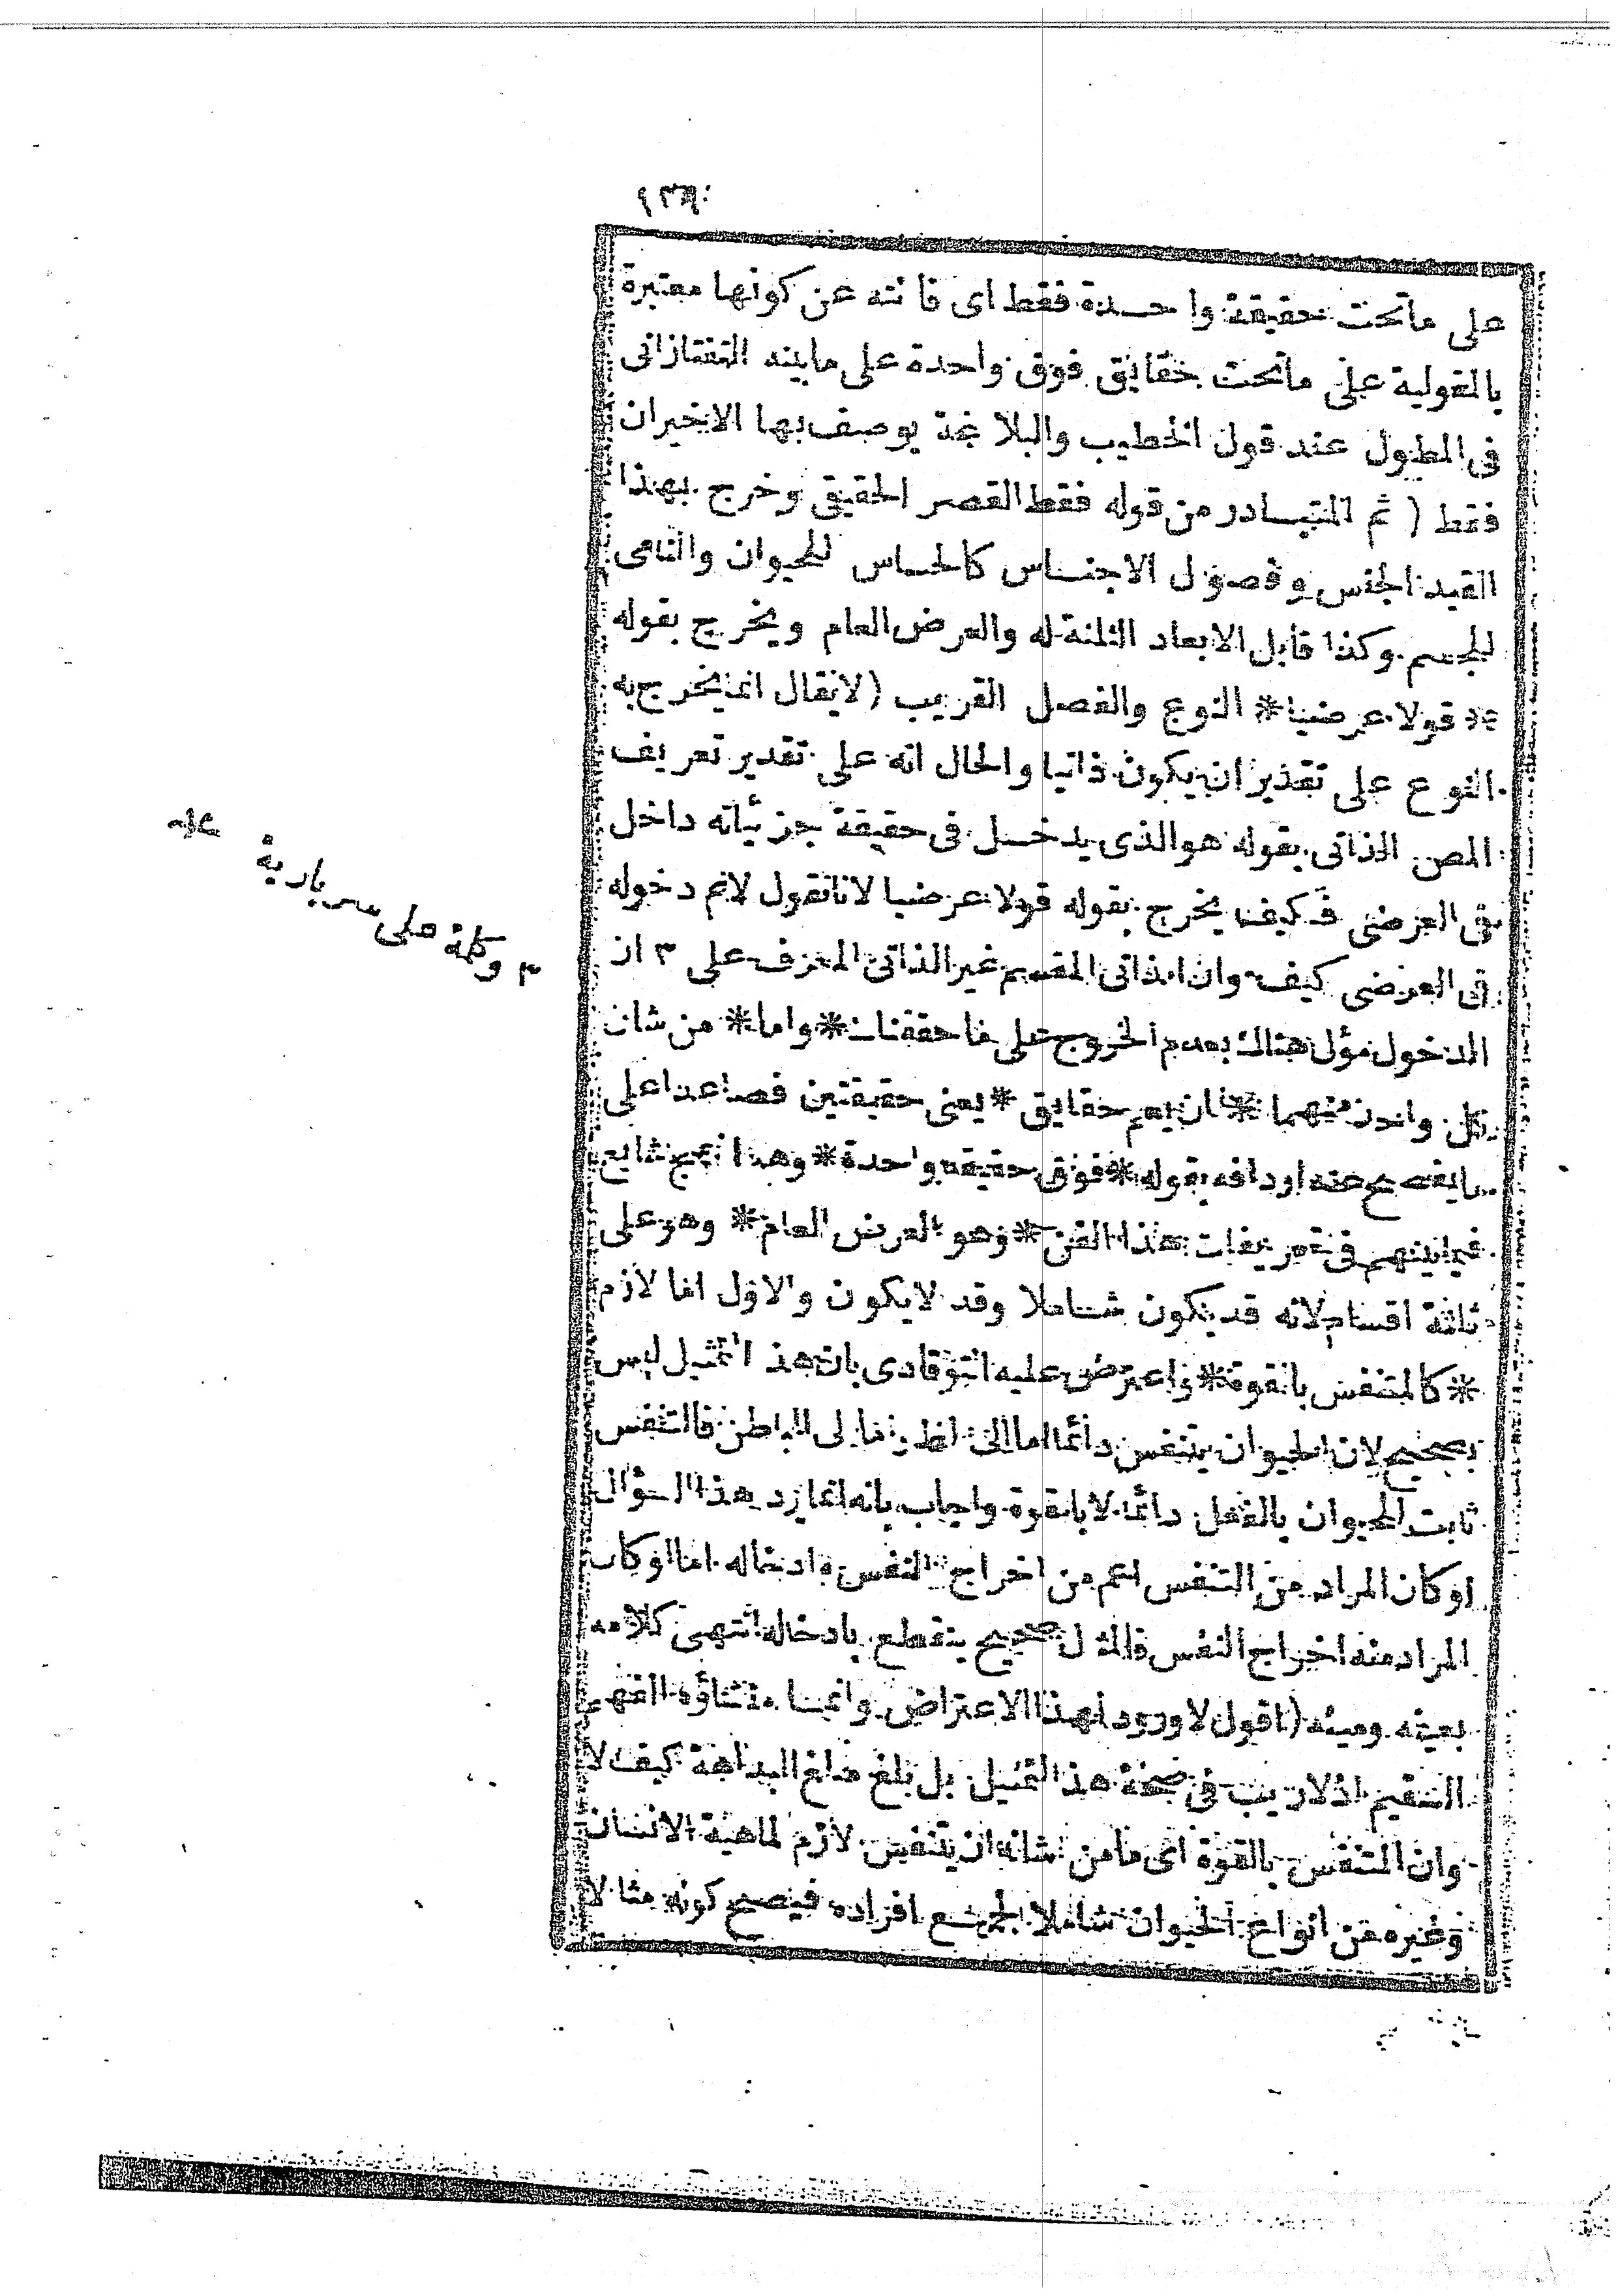 على ماتحت حقيقة واحدة فقط اى فائته عن كونها معتبرة
بالمقولية على ماتحت حقايق فوق واحدة على مابينه التفتازانى
فى المطول عند قول الخطيب والبلاغة يوصف بها الاخيران
فقط ( ثم المتبادر من قوله فقط القصر الحقيقى وخرج بهذا
القيد الجنس وفصول الاجناس كالحساس للحيوان والنامى
للجسم وكذا قابل الابعاد الثلثة له والعرض العام ويخرج بقوله
* قولا عرضيا * النوع والفصل القريب (لايقال انما يخرج به
النوع على تقدير ان يكون ذاتيا والحال انه على تقدير تعريف
المص الذاتى بقوله هو الذى يدخل فى حقيقة جزئياته داخل
فى العرضى فكيف يخرج بقوله قولا عرضيا لانا نقول لانم دخوله
فى العرضى كيف وان الذاتى المقسم غير الذاتى المعرف على ٣ ان
الدخول مؤل هناك بعدم الخروج على ما حققنا * واما * من شان
كل واحد منهما * ان يعم حقايق * يعنى حقيقتين فصاعدا على
مايفصح عنه اردافه بقوله * فوق حقيقة واحدة * وهذا شايع
فيما بينهم فى تعريفات هذا الفن * وهو العرض العام * وهو على
ثلثة اقسام لانه قد يكون شاملا وقد لايكون والاول اما لازم
* كالمتنفس بالقوة * واعترض عليه التوقادى بان هذا التمثيل ليس
بصحيح لان الحيوان يتنفس دائما اما الى الظ واما الى الباطن فالتنفس
ثابت للحيوان بالفعل دائما لا بالقوة واجاب بانه انما يرد هذا السؤال
لو كان المراد من التنفس اعم من اخراج النفس وادخاله اما لو كان
المراد منه اخراج النفس فالمثال صحيح ينقطع بادخاله انتهى كلامه
بعينه ومينه (اقول لا ورود لهذا الاعتراض وانما منشاؤه الفهم
السقيم اذ لاريب فى صحة هذا التمثيل بل بلغ مبلغ البداهة كيف لا
وان المتنفس بالقوة اى مامن شانه ان يتنفس لازم لماهية الانسان
وغيره من انواع الحيوان شاملا لجميع افراده فيصح كونه مثالا
٣ وكلمة على سببارية